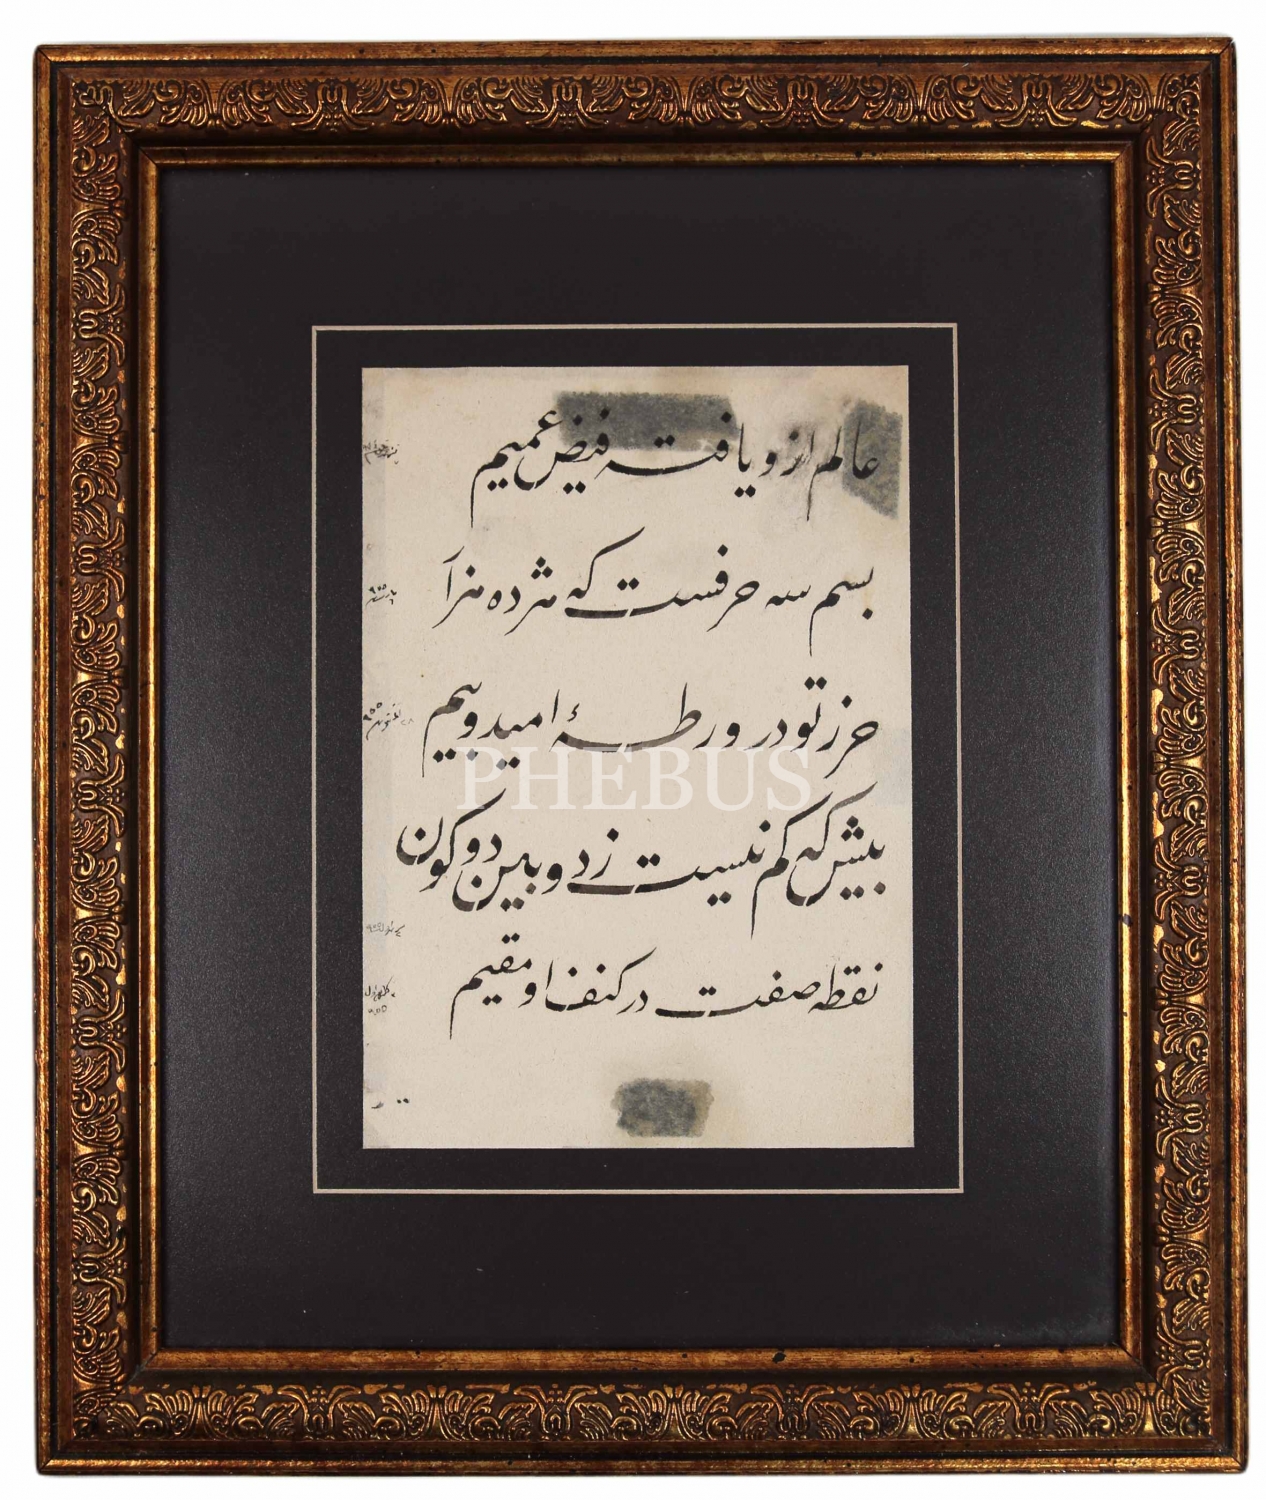 عالم ازو یافته فیض عمیم
بسم سه حرفست که هژده هزآ
حرز تو در ورطهٔ امید و بیم
PHEBUS
بیش که کم نیست ز د و بین دو کون
نقطه صفت در کنف او مقیم